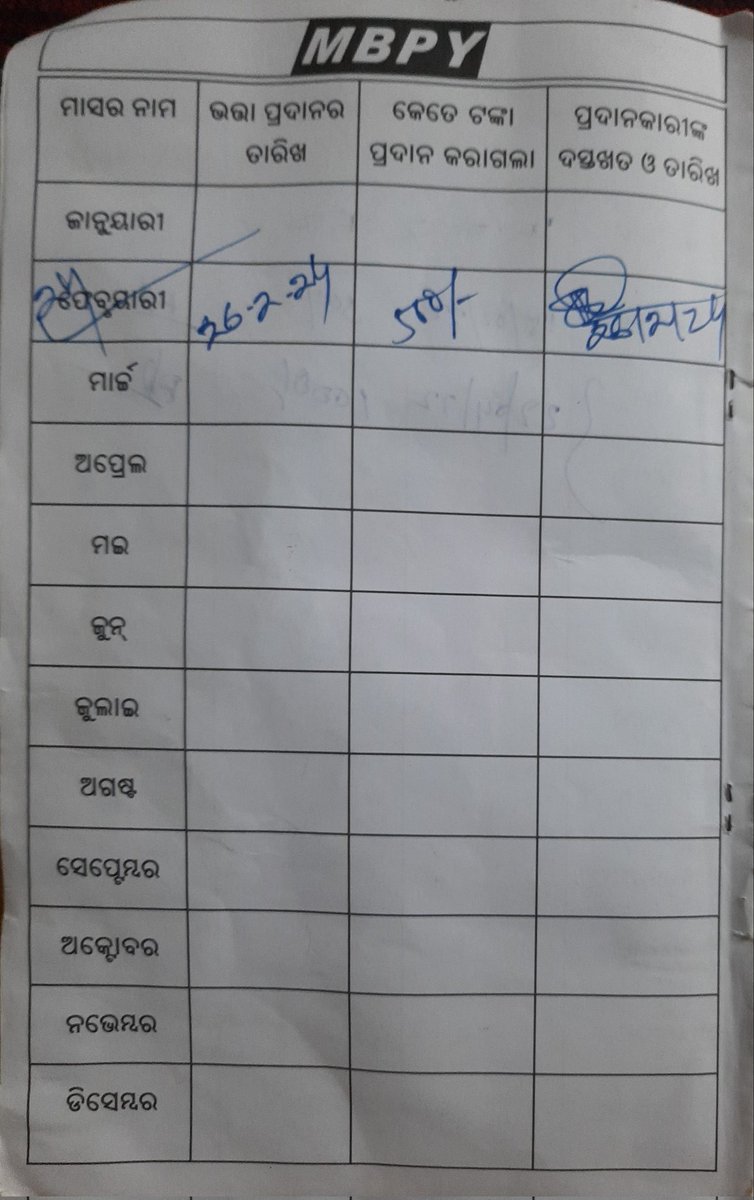 MBPY
ମାସର ନାମ
ଭତ୍ତା ପ୍ରଦାନର
ତାରିଖ
କେତେ ଟଙ୍କା
ପ୍ରଦାନ କରାଗଲା
ପ୍ରଦାନକାରୀଙ୍କ
ଦସ୍ତଖତ ଓ ତାରିଖ
ଜାନୁୟାରୀ
ଫେବୃୟାରୀ
ମାର୍ଚ୍ଚ
ଅପ୍ରେଲ
ମଇ
ଜୁନ୍
ଜୁଲାଇ
ଅଗଷ୍ଟ
ସେପ୍ଟେମ୍ବର
ଅକ୍ଟୋବର
ନଭେମ୍ବର
ଡିସେମ୍ବର